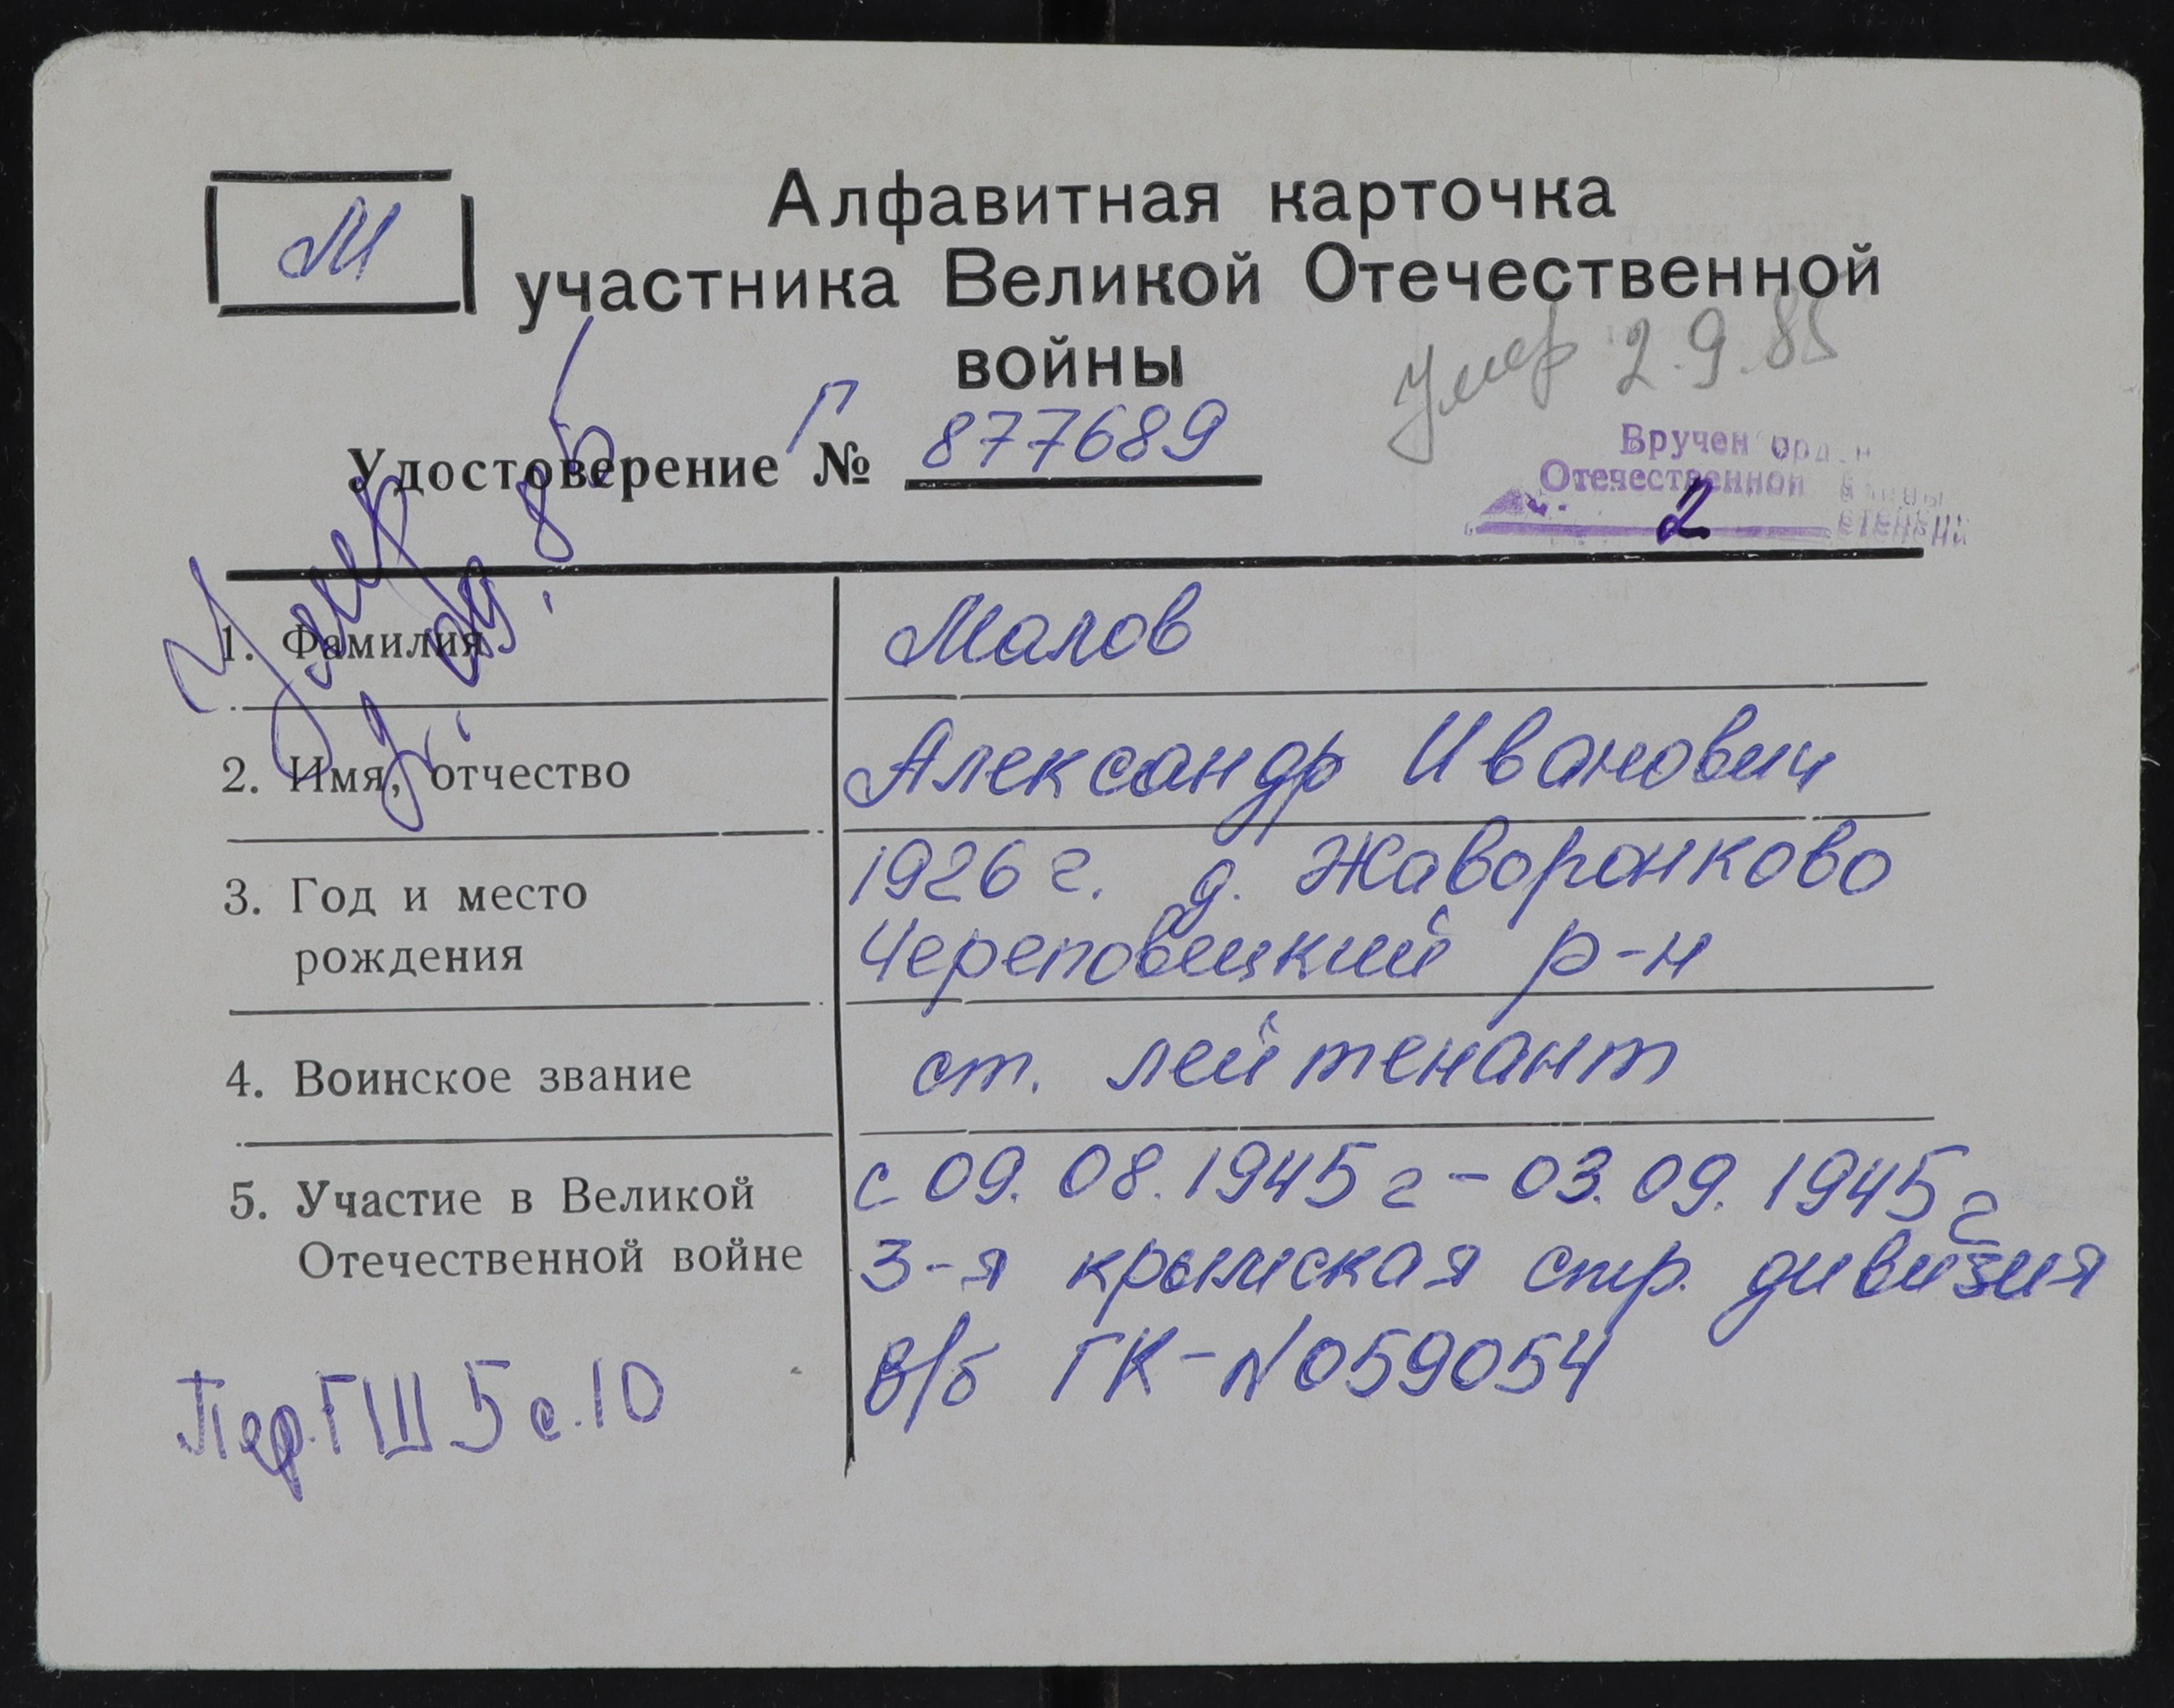 М
Алфавитная карточка
участника Великой Отечественной
войны
Умер 2.9.85
Удостоверение Г № 877689
Вручен орден
Отечественной войны
2 степени
Умер
2. 09. 85
1. Фамилия
Малов
2. Имя, отчество
Александр Иванович
3. Год и место
рождения
1926 г. д. Жаворонково
Череповецкий р-н
4. Воинское звание
ст. лейтенант
5. Участие в Великой
Отечественной войне
с 09. 08. 1945 г - 03. 09. 1945 г
3-я крымская стр. дивизия
в/б ГК-N059054
Пер. ГШ 5 с. 10